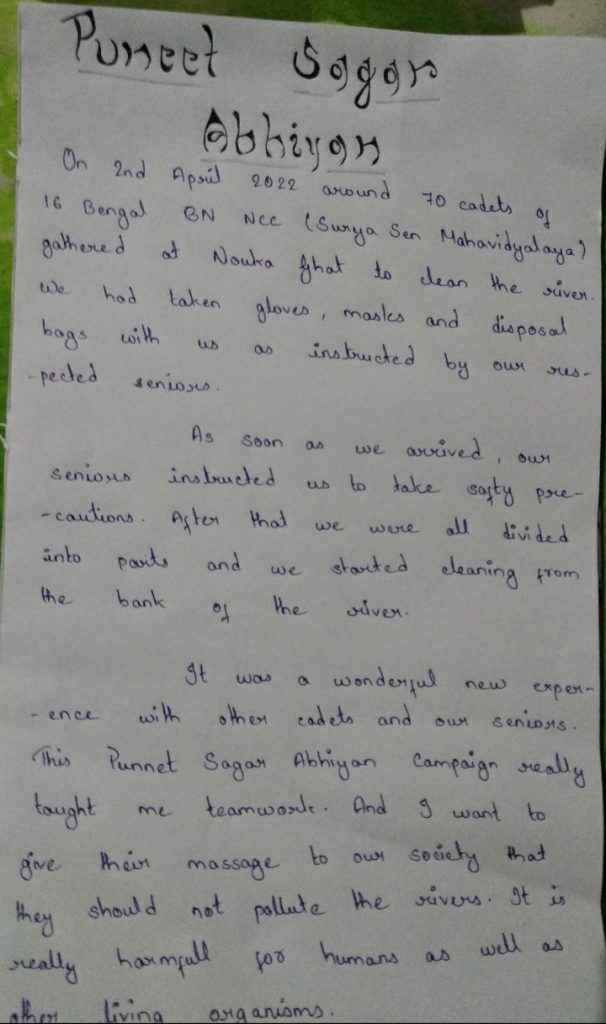 Puneet Sagar
Abhiyan
On 2nd April 2022 around 70 cadets of
16 Bengal BN NCC (Surya Sen Mahavidyalaya)
gathered at Nouka ghat to clean the river.
We had taken gloves, masks and disposal
bags with us as instructed by our res-
-pected seniors.
As soon as we arrived, our
seniors instructed us to take safty pre-
-cautions. After that we were all divided
into parts and we started cleaning from
the bank of the river.
It was a wonderful new exper-
-ence with other cadets and our seniors.
This Punnet Sagar Abhiyan Campaign really
taught me teamwork. And I want to
give their massage to our society that
they should not pollute the rivers. It is
really harmfull for humans as well as
other living organisms.